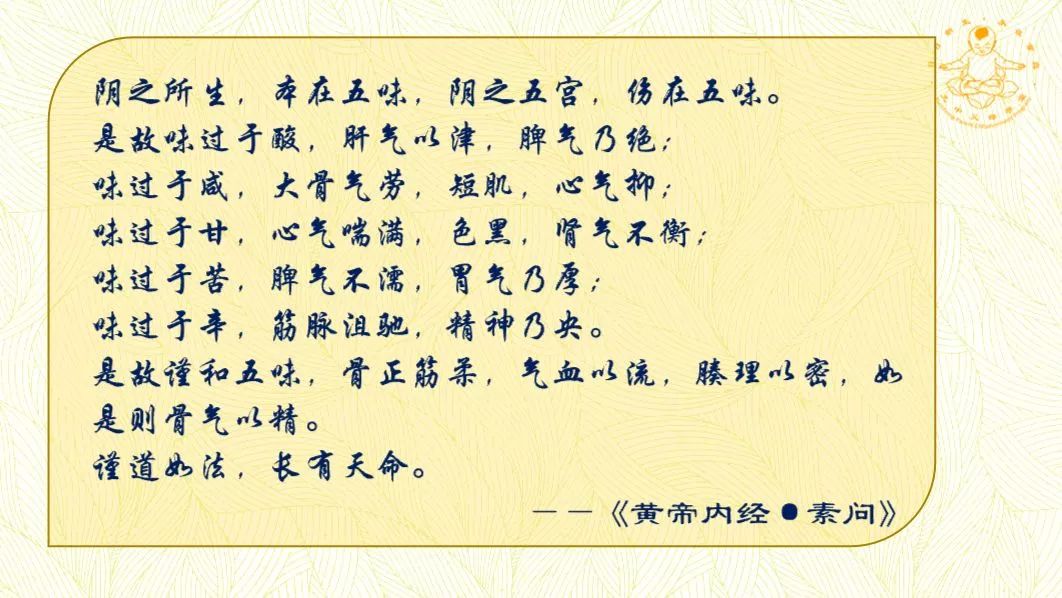 阴之所生，本在五味，阴之五宫，伤在五味。
是故味过于酸，肝气以津，脾气乃绝；
味过于咸，大骨气劳，短肌，心气抑；
味过于甘，心气喘满，色黑，肾气不衡；
味过于苦，脾气不濡，胃气乃厚；
味过于辛，筋脉沮驰，精神乃央。
是故谨和五味，骨正筋柔，气血以流，腠理以密，如
是则骨气以精。
谨道如法，长有天命。
——《黄帝内经●素问》